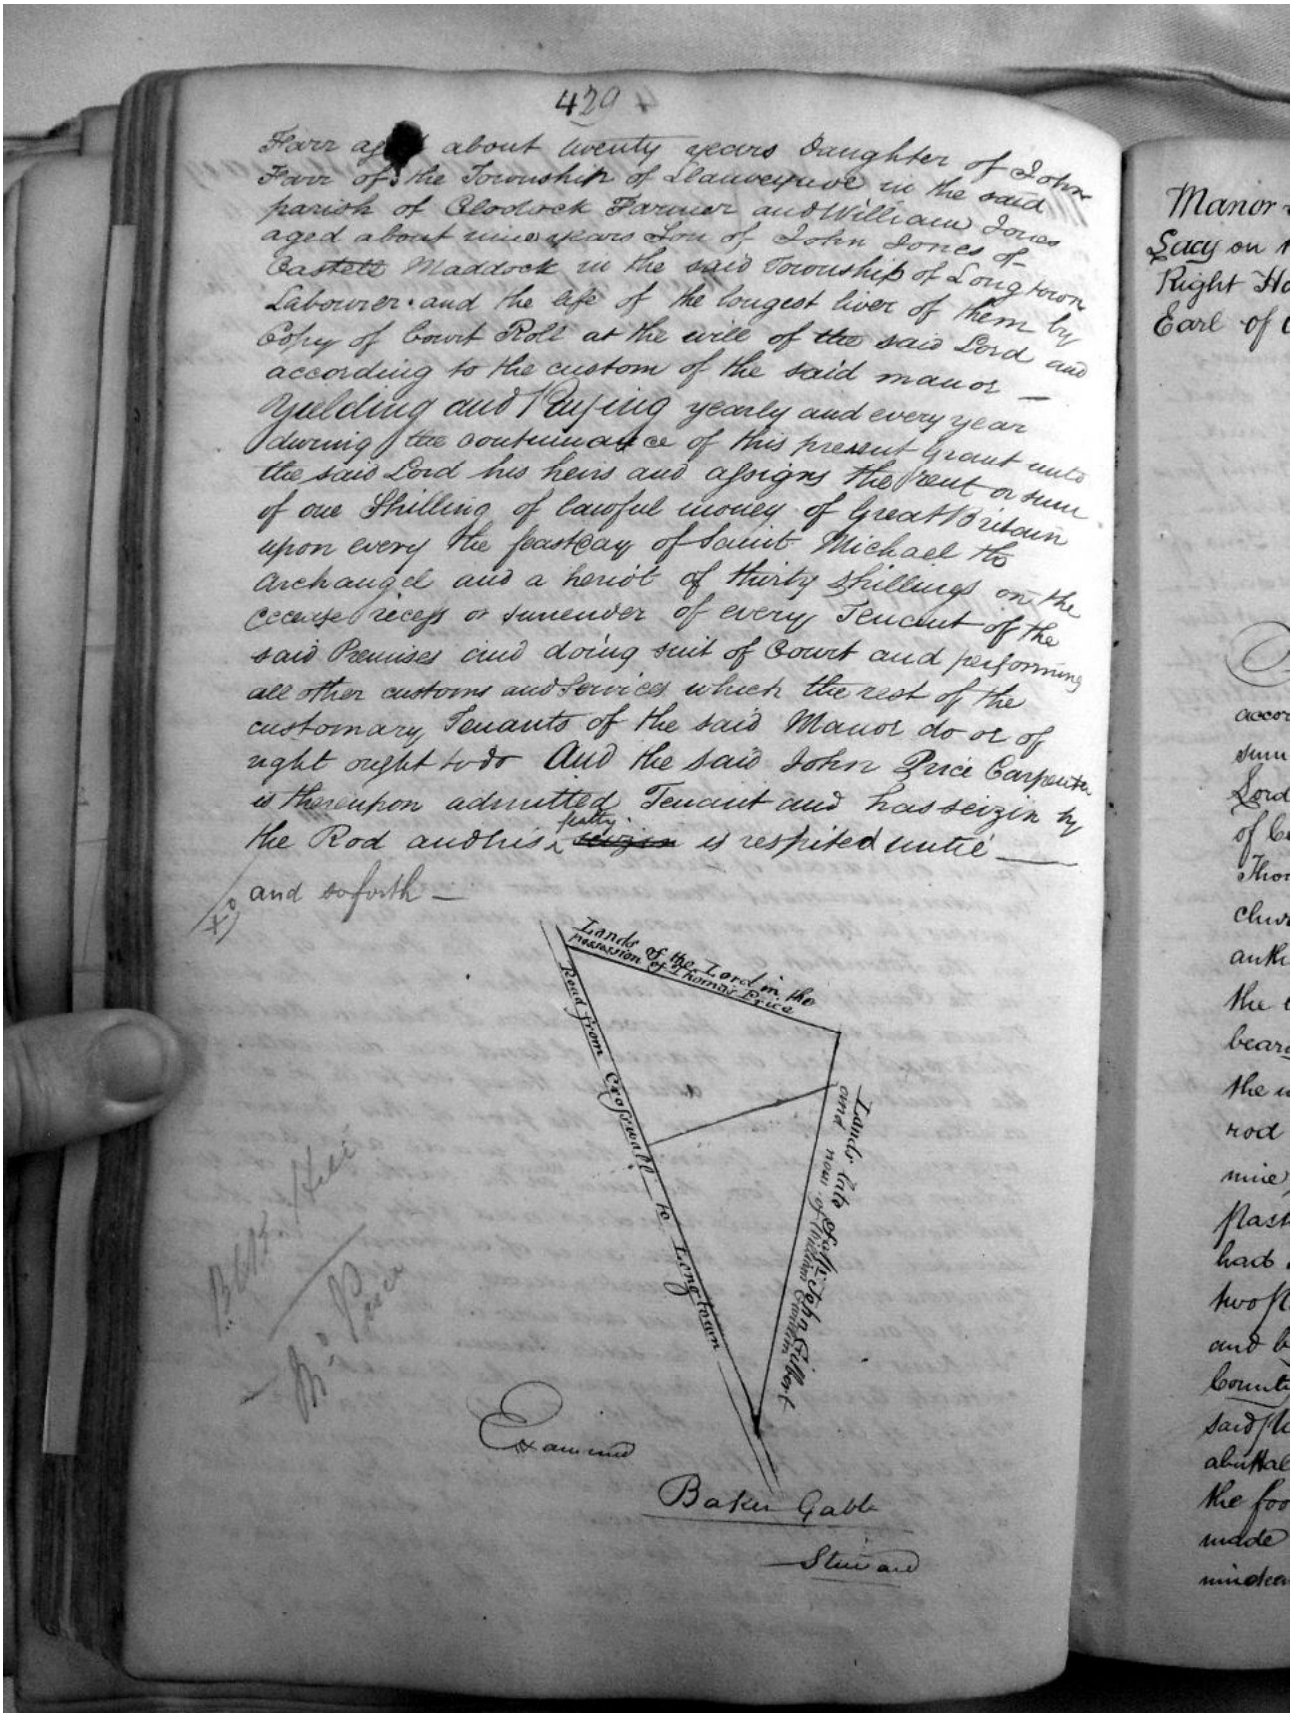 429
Farr aged about twenty years Daughter of John
Farr of the Township of Llanveynoe in the said
parish of Clodock Farmer and William Jones
aged about nine years Son of John Jones of
Castell Maddock in the said Township of Longtown
Labourer and the life of the longest liver of them by
Copy of Court Roll at the will of the said Lord and
according to the custom of the said manor —
Yielding and Paying yearly and every year
during the continuance of this present Grant unto
the said Lord his heirs and assigns the rent or sum
of one Shilling of lawful money of Great Britain
upon every the feastday of Saint Michael the
Archangel and a heriot of thirty shillings on the
decease recess or surrender of every Tenant of the
said Premises and doing suit of Court and performing
all other customs and Services which the rest of the
customary Tenants of the said Manor do or of
right ought to do And the said John Price Carpenter
is thereupon admitted Tenant and has seizin by
fealty
the Rod and his seizin is respited until —
and so forth —
Lands of the Lord in the
possession of Thomas Price
Road from Crosswall to Longtown
Lands late John Gilbert
and now of William
Price
Examined
Baker Gabb
Steward
Manor
Lacy on
Right Ho
Earl of
accor
sum
Lord
of
Tho
the
bear
the
rod
nine
had
and
County
said
abuttal
the foo
made